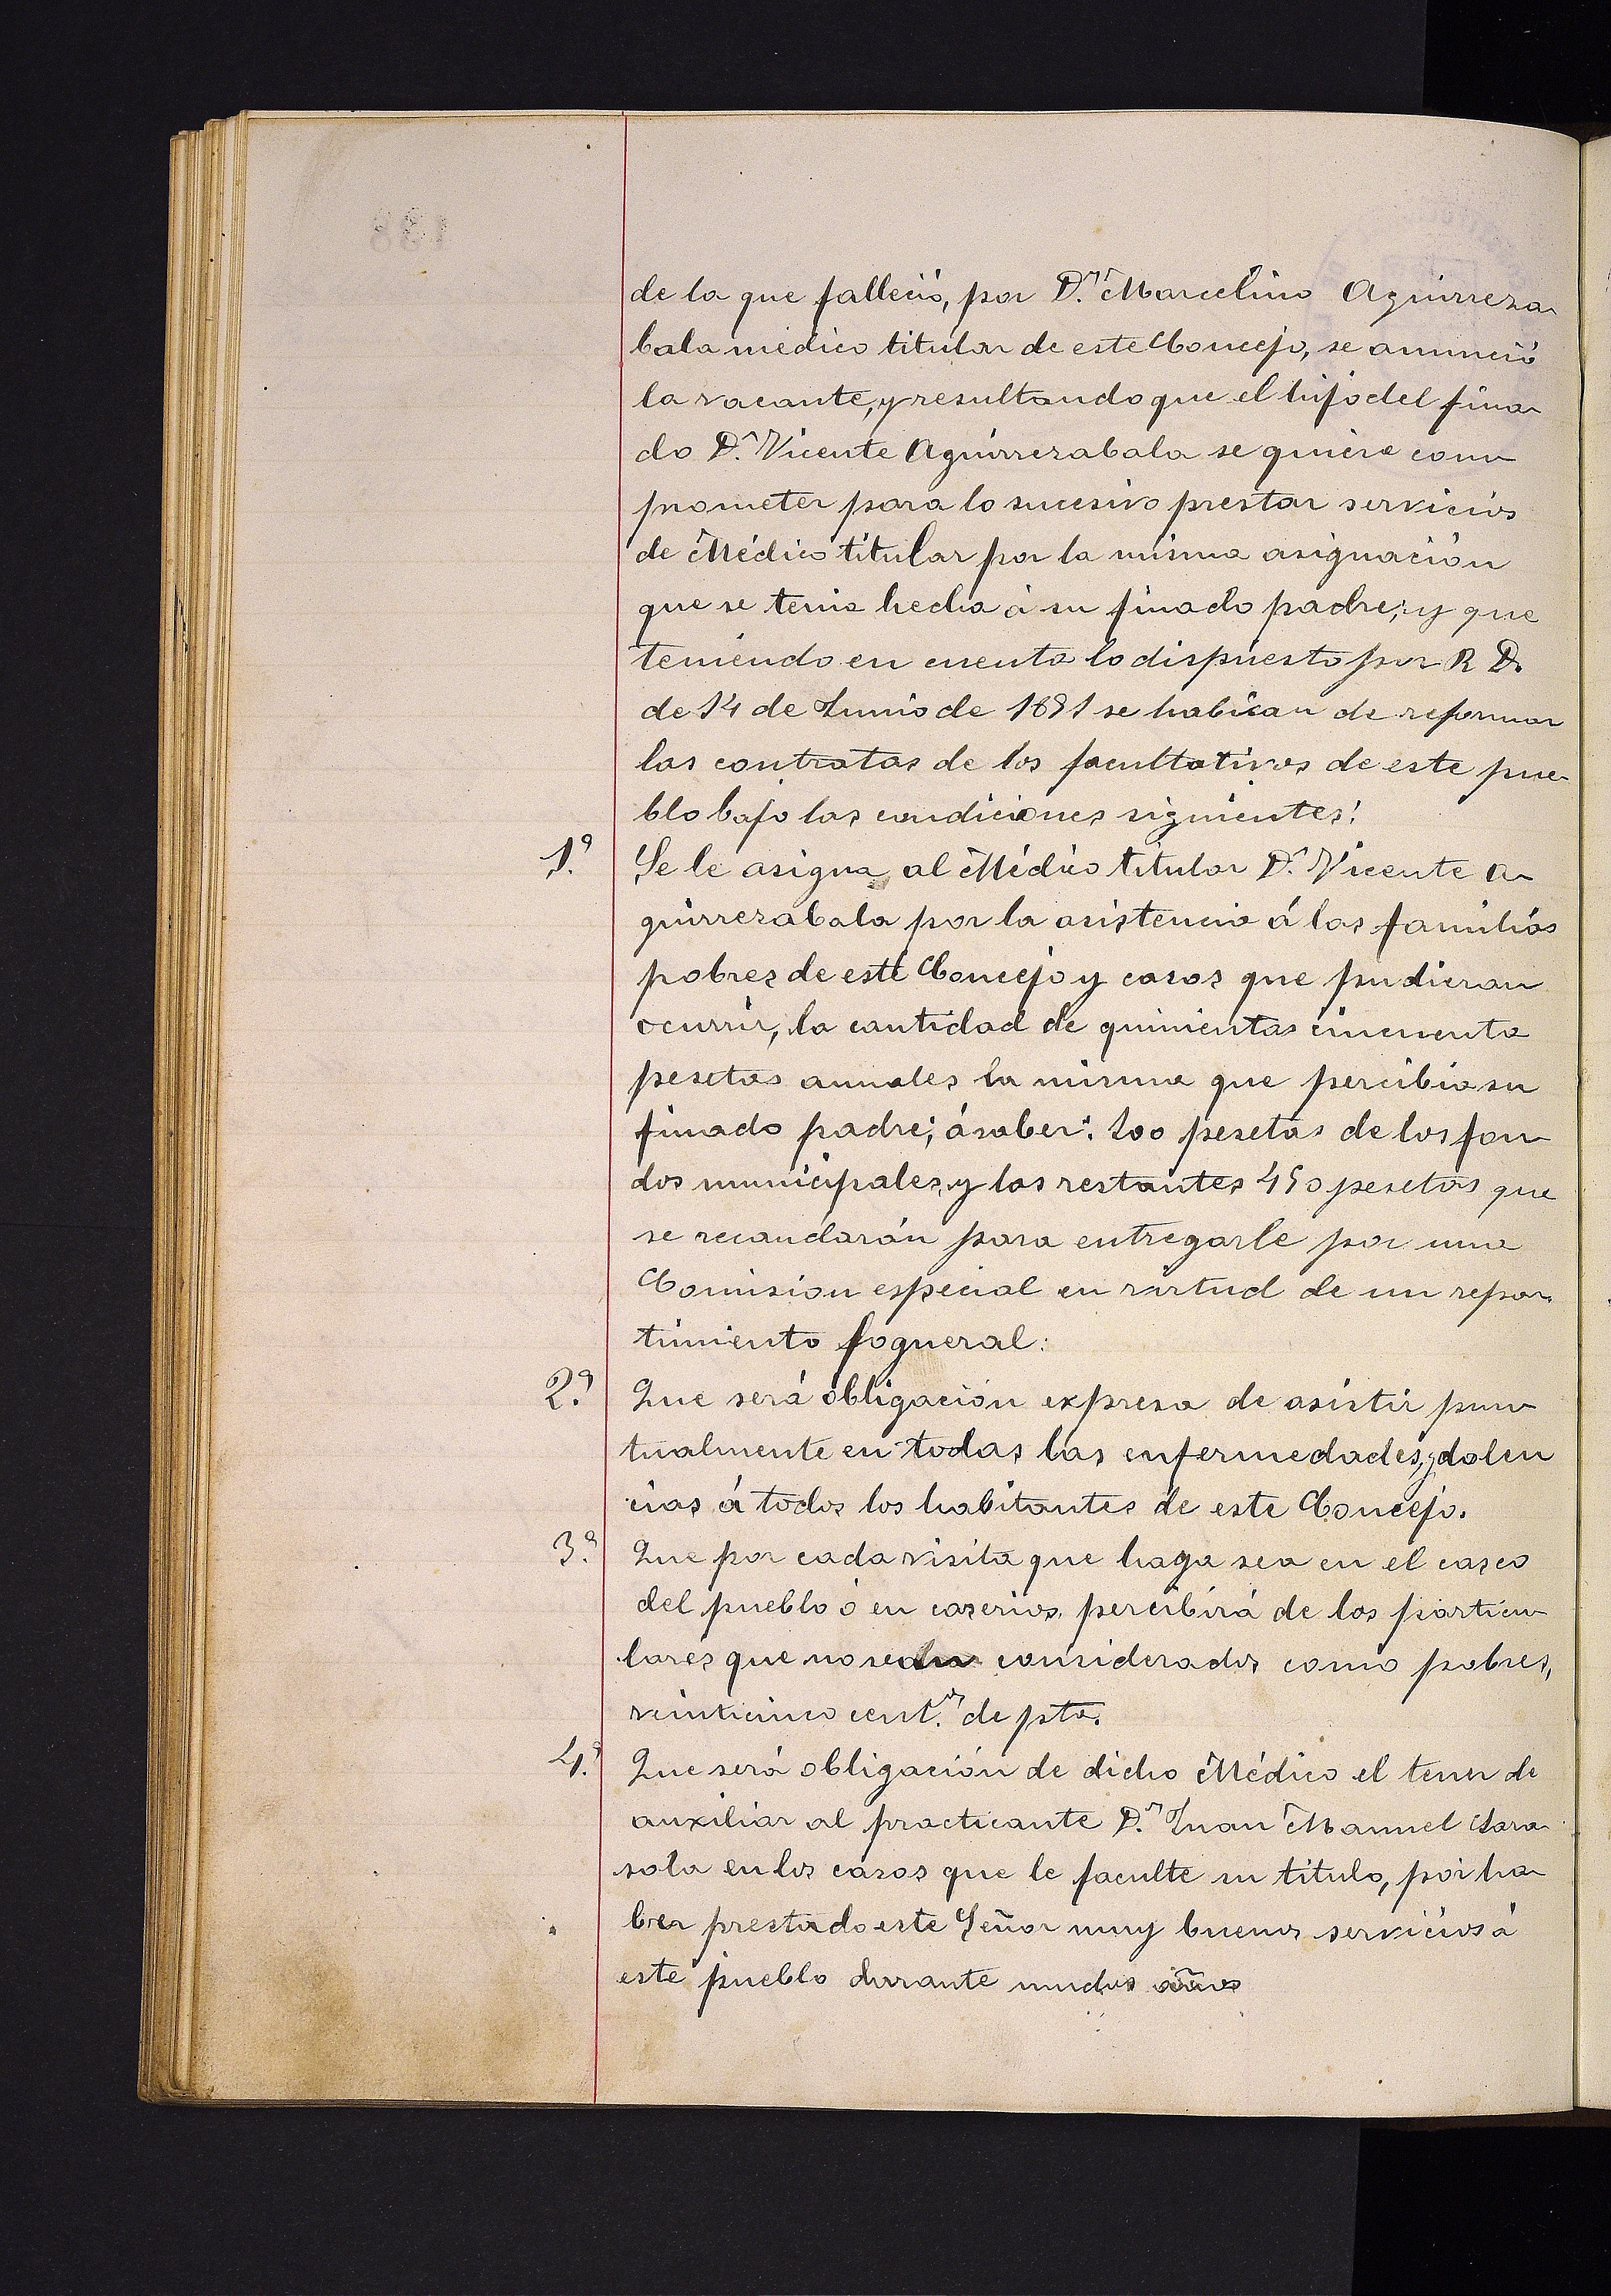 de la que falleció, por D.n Marcelino Aguirreza
bala médico titular de este Concejo, se anunció
la vacante, y resultando que el hijo del fina
do D.n Vicente Aguirrezabala se quiere com
prometer para lo sucesivo prestar servicios
de Médico titular por la misma asignación
que se tenia hecha á su finado padre; y que
teniendo en cuenta lo dispuesto por R D.
de 14 de Junio de 1891 se habian de reformar
las contratas de los facultativos de este pue-
blo bajo las condiciones siguientes:
1.a Se le asigna al Médico titular D.n Vicente A
guirrezabala por la asistencia á las familias
pobres de este Concejo y casos que pudieran
ocurrir, la cantidad de quinientas cincuenta
pesetas anuales la misma que percibia su
finado padre; á saber: 100 pesetas de los fon
dos municipales, y las restantes 450 pesetas que
se recaudarán para entregarle por una
Comision especial en virtud de un repar
timiento fogueral:
2.a Que será obligación expresa de asistir pun
tualmente en todas las enfermedades, y dolen
cias á todos los habitantes de este Concejo.
3.a Que por cada visita que haga sea en el casco
del pueblo ó en caserios, percibirá de los particu
lares que no sean considerados como pobres,
veinticinco cent.s de pta.
4.a Que será obligación de dicho Médico el tener de
auxiliar al practicante D.n Juan Manuel Sara
sola en los casos que le faculte su titulo, por ha
ber prestado este Señor muy buenos servicios á
este pueblo durante muchos años
138